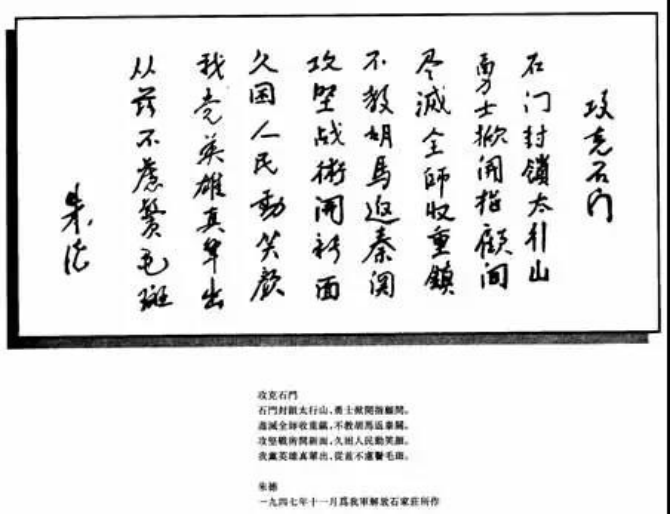 攻克石门
石门封鎖太行山
勇士掀開指顧间
尽滅全師收重鎮
不教胡馬返秦関
攻坚战術開新面
久困人民動笑顏
我党英雄真輩出
从兹不慮鬓毛斑
朱德
攻克石門
石門封鎖太行山，勇士掀開指顧間。
盡滅全師收重鎮，不教胡馬返秦關。
攻堅戰術開新面，久困人民動笑顏。
我黨英雄真輩出，從兹不慮鬢毛斑。
朱德
一九四七年十一月爲我軍解放石家莊所作